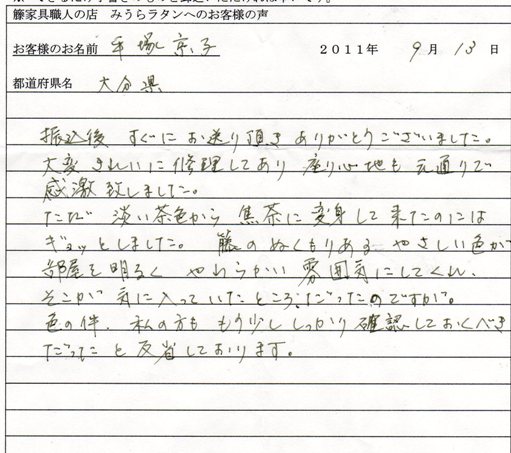 籐家具職人の店　みうらラタンへのお客様の声
お客様のお名前　手塚京子　2011年　9月　13日
都道府県名　大分県
振込後　すぐに　お送り頂き　ありがとうございました。
大変　きれいに修理してあり　座り心地も　元通りで
感激致しました。
ただ　淡い茶色から　焦茶に　変身して来たのには
ギョッとしました。　籐のぬくもりある　やさしい色が
部屋を明るく　やわらかい　雰囲気にしてくれ、
そこが　気に入っていたところだったのですが。
色の件、私の方も　もう少ししっかり確認しておくべき
だったと反省しております。